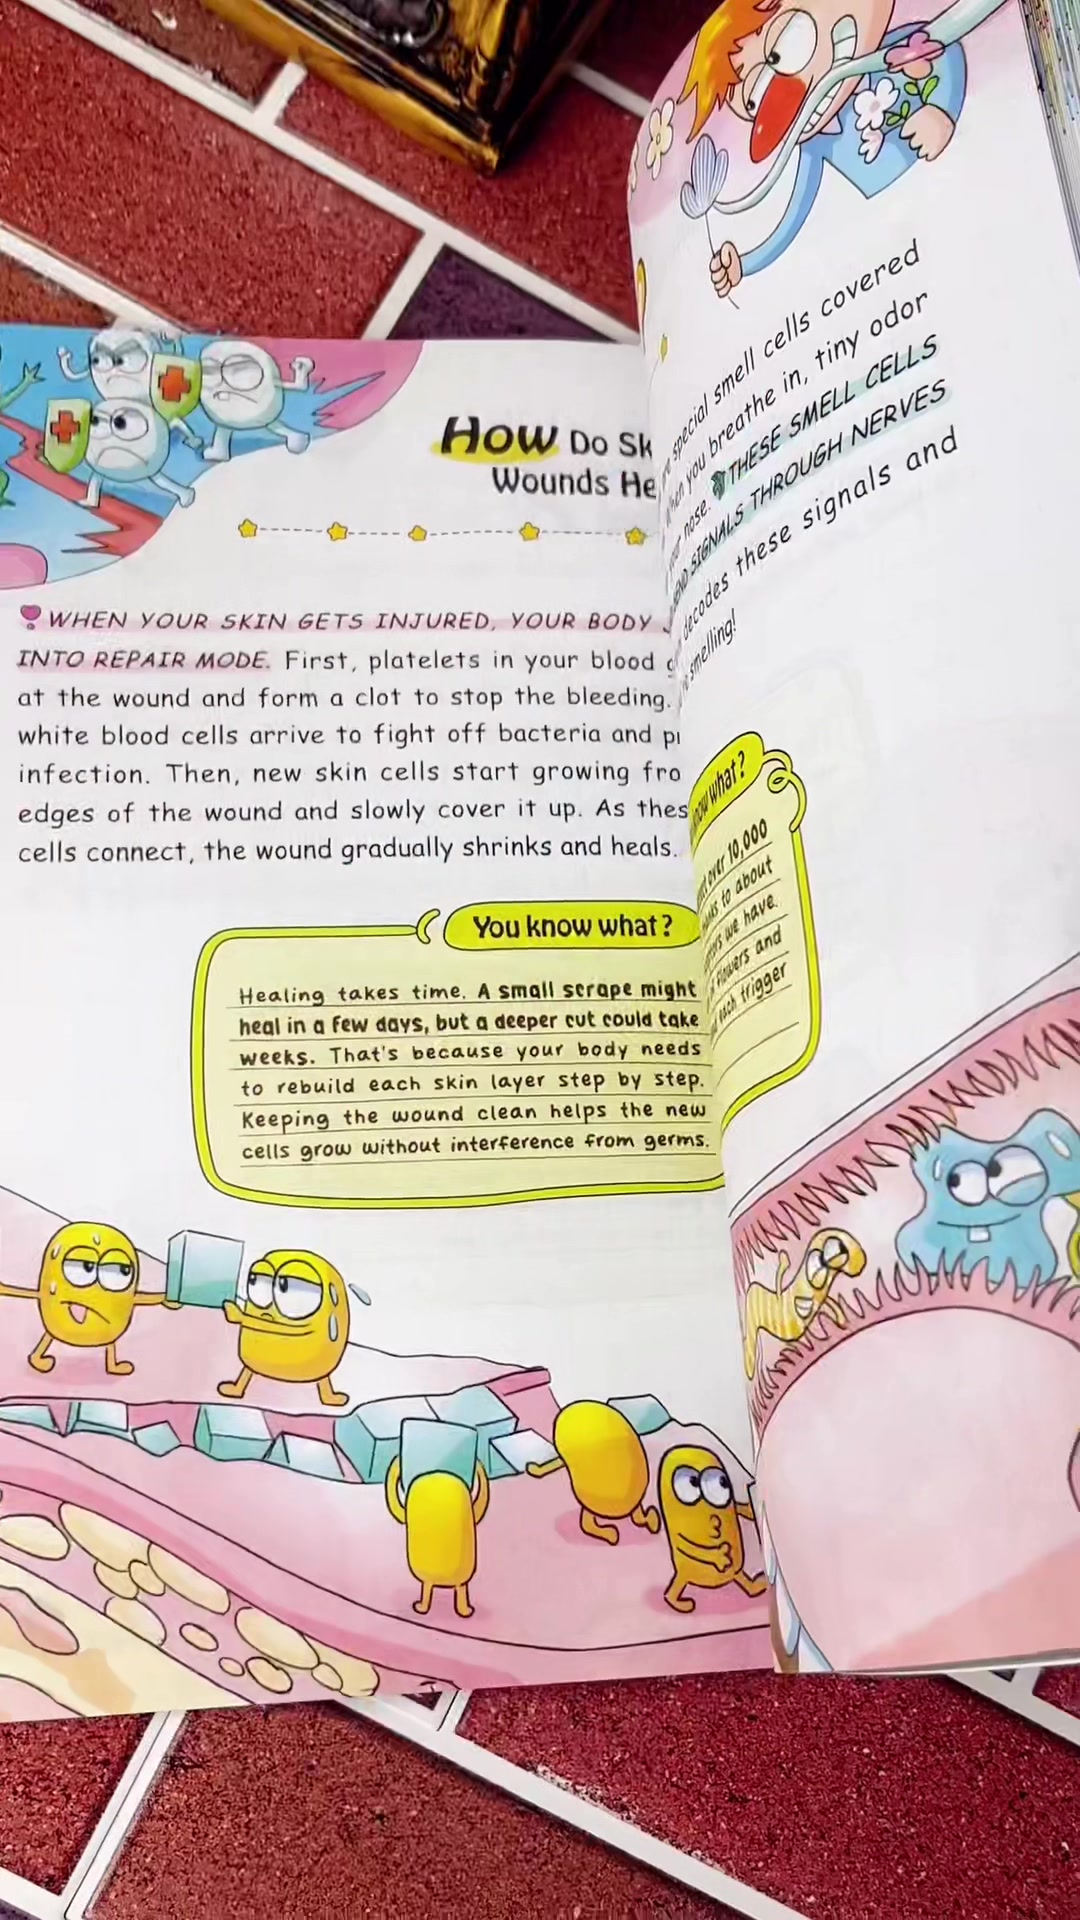 How Do Sk
Wounds He
WHEN YOUR SKIN GETS INJURED, YOUR BODY
INTO REPAIR MODE. First, platelets in your blood
at the wound and form a clot to stop the bleeding.
white blood cells arrive to fight off bacteria and
infection. Then, new skin cells start growing fro
edges of the wound and slowly cover it up. As thes
cells connect, the wound gradually shrinks and heals.
You know what?
Healing takes time. A small scrape might
heal in a few days, but a deeper cut could take
weeks. That's because your body needs
to rebuild each skin layer step by step.
Keeping the wound clean helps the new
cells grow without interference from germs.
special smell cells covered
you breathe in, tiny odor
nose. THESE SMELL CELLS
SIGNALS THROUGH NERVES
decodes these signals and
smelling!
know what?
over 10,000
to about
we have.
flowers and
each trigger